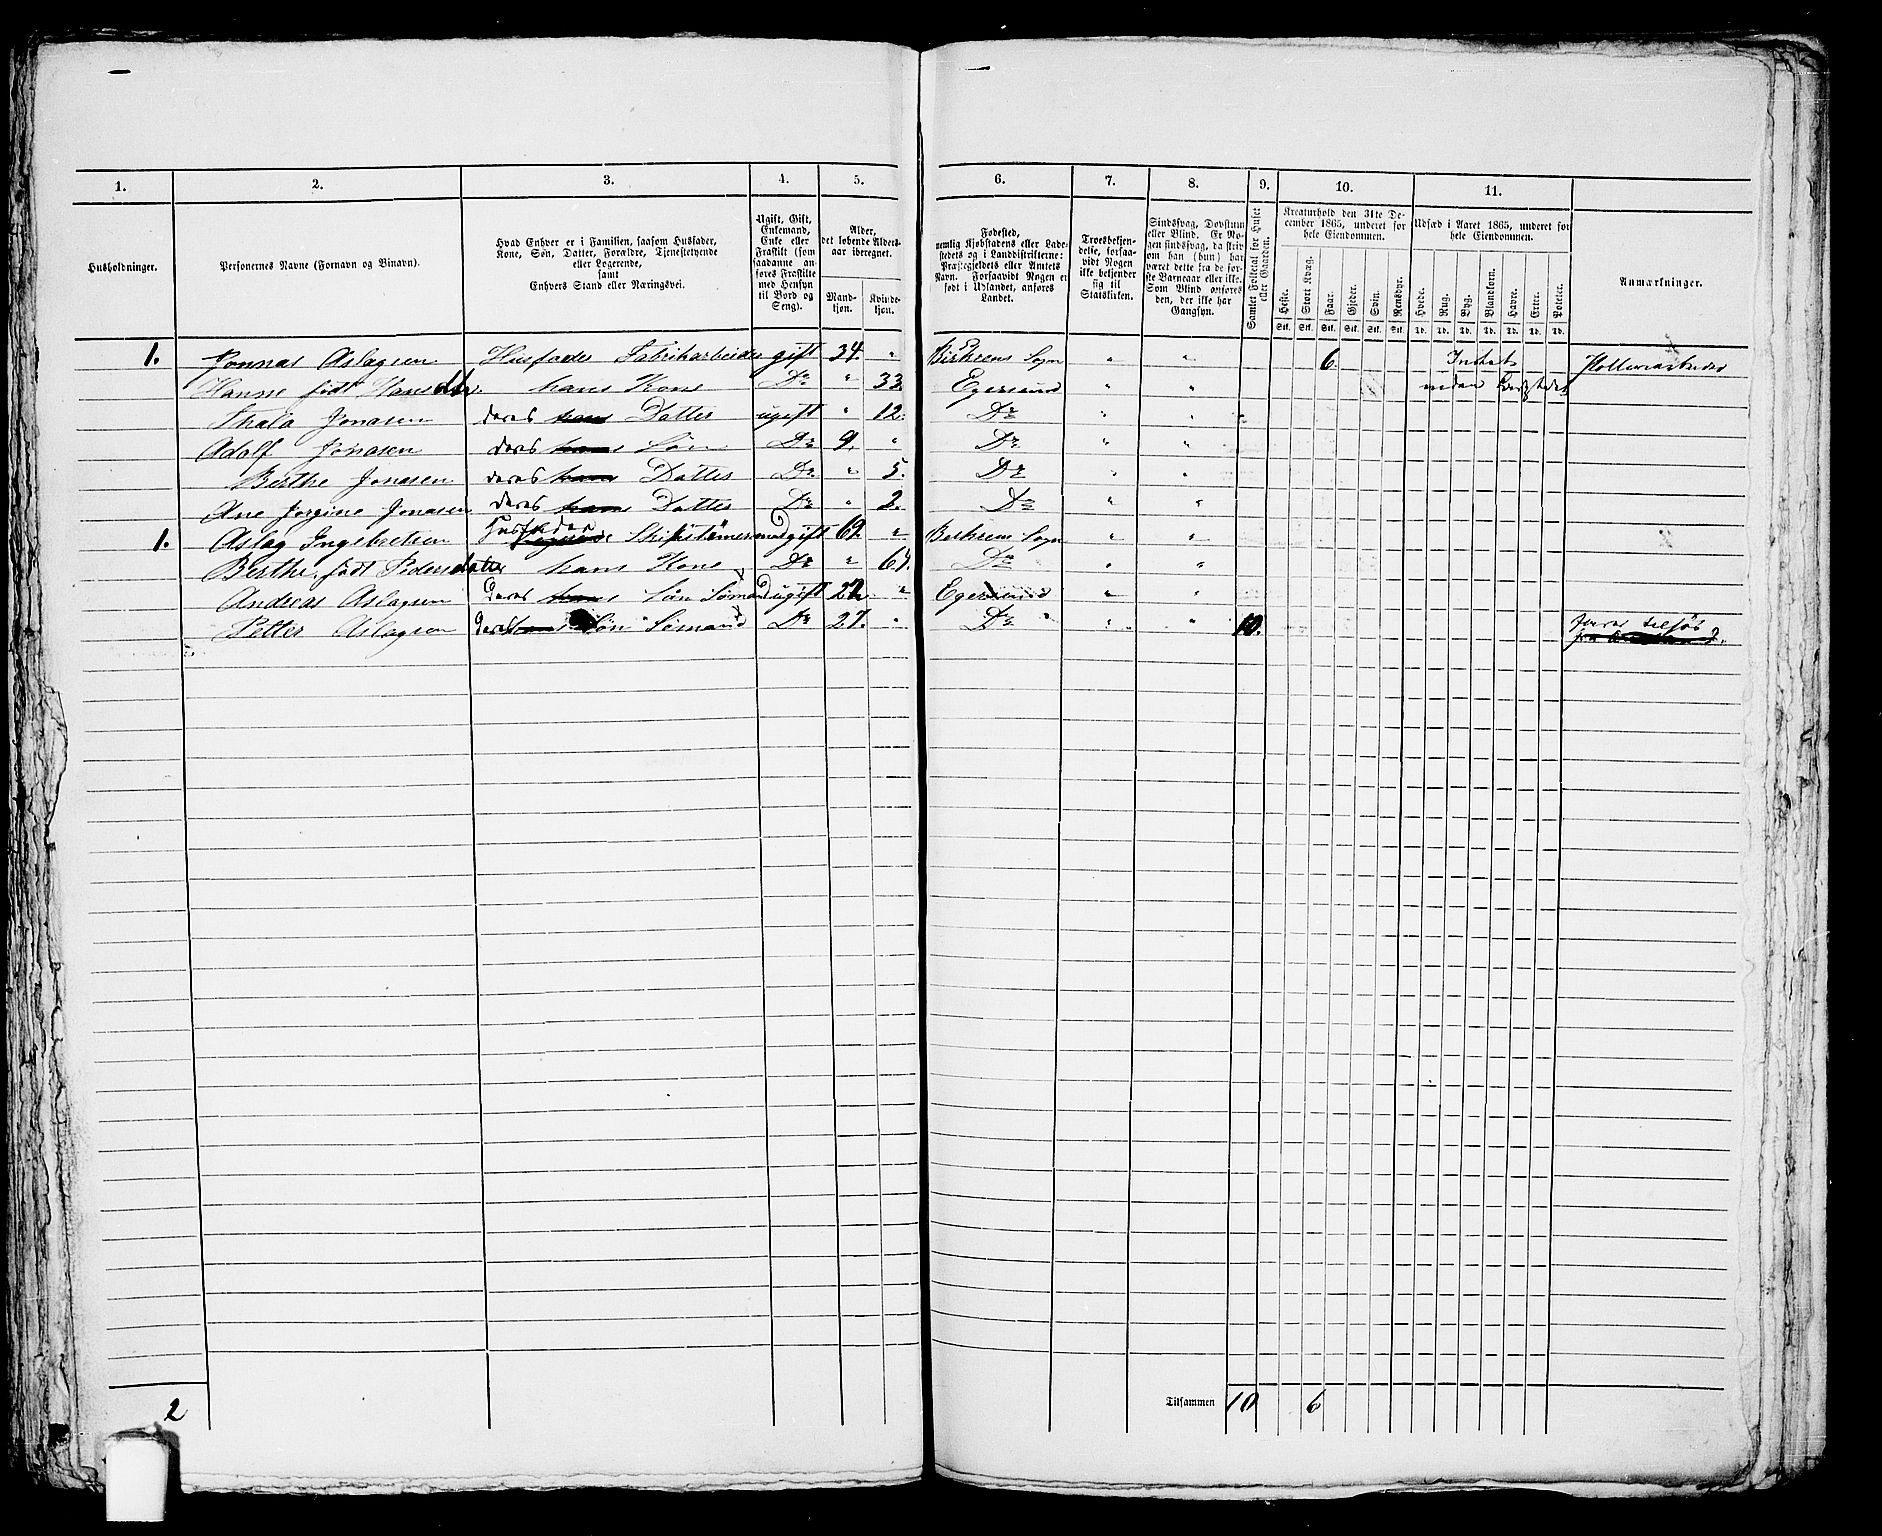 1. 2. 3. 4. 5. 6. 7. 8. 9. 10. 11.
Husholdninger.
Personernes Navne (Fornavn og Binavn).
Hvad Enhver er i Familien, saasom Husfader,
Kone, Søn, Datter, Forældre, Tjenestetyende
eller Logerende,
samt
Enhvers Stand eller Næringsvei.
Ugift, Gift,
Enkemand,
Enke eller
Fraskilt (som
saadanne an-
føres Fraskilte
med Hensyn
til Bord og
Seng).
Alder,
det løbende Alders-
aar iberegnet.
Mand-
kjøn.
Kvinde-
kjøn.
Fødested,
nemlig Kjøbstadens eller Lade-
stedets og i Landdistrikterne:
Præstegjeldets eller Amtets
Navn. Forsaavidt Nogen er
født i Udlandet, anføres
Landet.
Troesbekjen-
delse, forsaa-
vidt Nogen
ikke bekjender
sig til
Statskirken.
Sindssvag, Døvstum
eller Blind. Er No-
gen sindssvag, da skriv
som han (hun) har
været dette fra de før-
ste Barneaar eller ikke.
Som Blind anføres
den, der ikke har
Gangsyn.
Samlet Folketal for Huset
eller Gaarden.
Kreaturhold den 31te De-
cember 1865, underet for
hele Eiendommen.
Heste. Stort Kvæg. Faar. Gjeder. Svin. Rensdyr.
Stk. Stk. Stk. Stk. Stk. Stk.
Udsæd i Aaret 1865, underet for
hele Eiendommen.
Hvede. Rug. Byg. Blandkorn. Havre. Erter. Poteter.
Td. Td. Td. Td. Td. Td. Td.
Anmærkninger.
1. Jonnas Aslagsen Husfader Fabrikarbeider gift 34. " Birkrems Sogn " " 6 Intet
Hanne født Hansdtr. hans Kone Do " 33. Egersund " " uden
Thala Jonasen deres hans Datter ugift " 12. Do " "
Adolf Jonasen deres hans Søn Do 9. " Do " "
Berthe Jonasen deres hans Datter Do " 5. Do " "
Ane Jorgine Jonasen deres hans Datter Do " 2. Do " "
1. Aslag Ingebretsen Husfader Skibstømermand gift 69. " Birkrems Sogn " "
Berthe, født Pedersdatter hans Kone Do " 64. Do " "
Andreas Aslagsen Deres hans Søn Sømand ugift 22. " Egersund " "
Petter Aslagsen Deres hans Søn Sømand Do 27. " Do " " " 10. farer tilsøs
2 Tilsammen 10 6